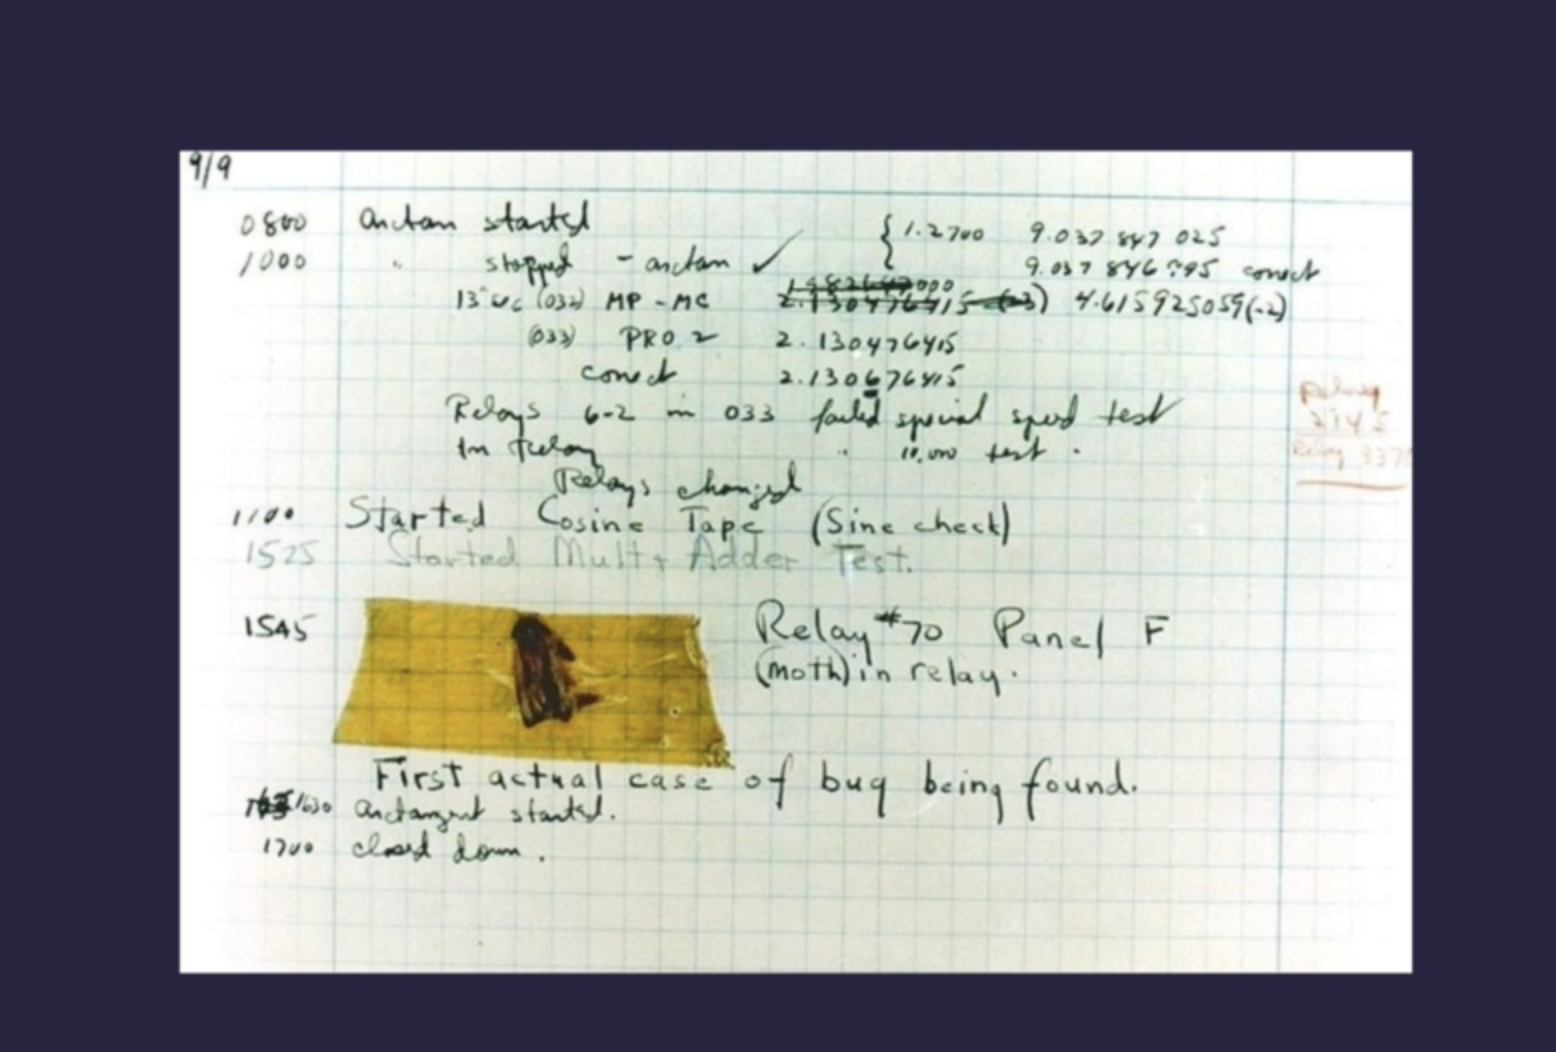 9/9
0800 arctan started { 1.2700 9.037 847 025
1000 " stopped - arctan ✓ 9.037 846 995 correct
13"uc (032) MP - MC 2.130476415 (-3) 4.615925059(-2)
(033) PRO 2 2.130476415
correct 2.130676415
Relays 6-2 in 033 failed special speed test
In Relay " 10,000 test .
Relays changed
1100 Started Cosine Tape (Sine check)
1525 Started Mult + Adder Test.
1545 Relay #70 Panel F
(moth) in relay.
First actual case of bug being found.
1630 arctangent started.
1700 closed down .
Relay
Relay 337